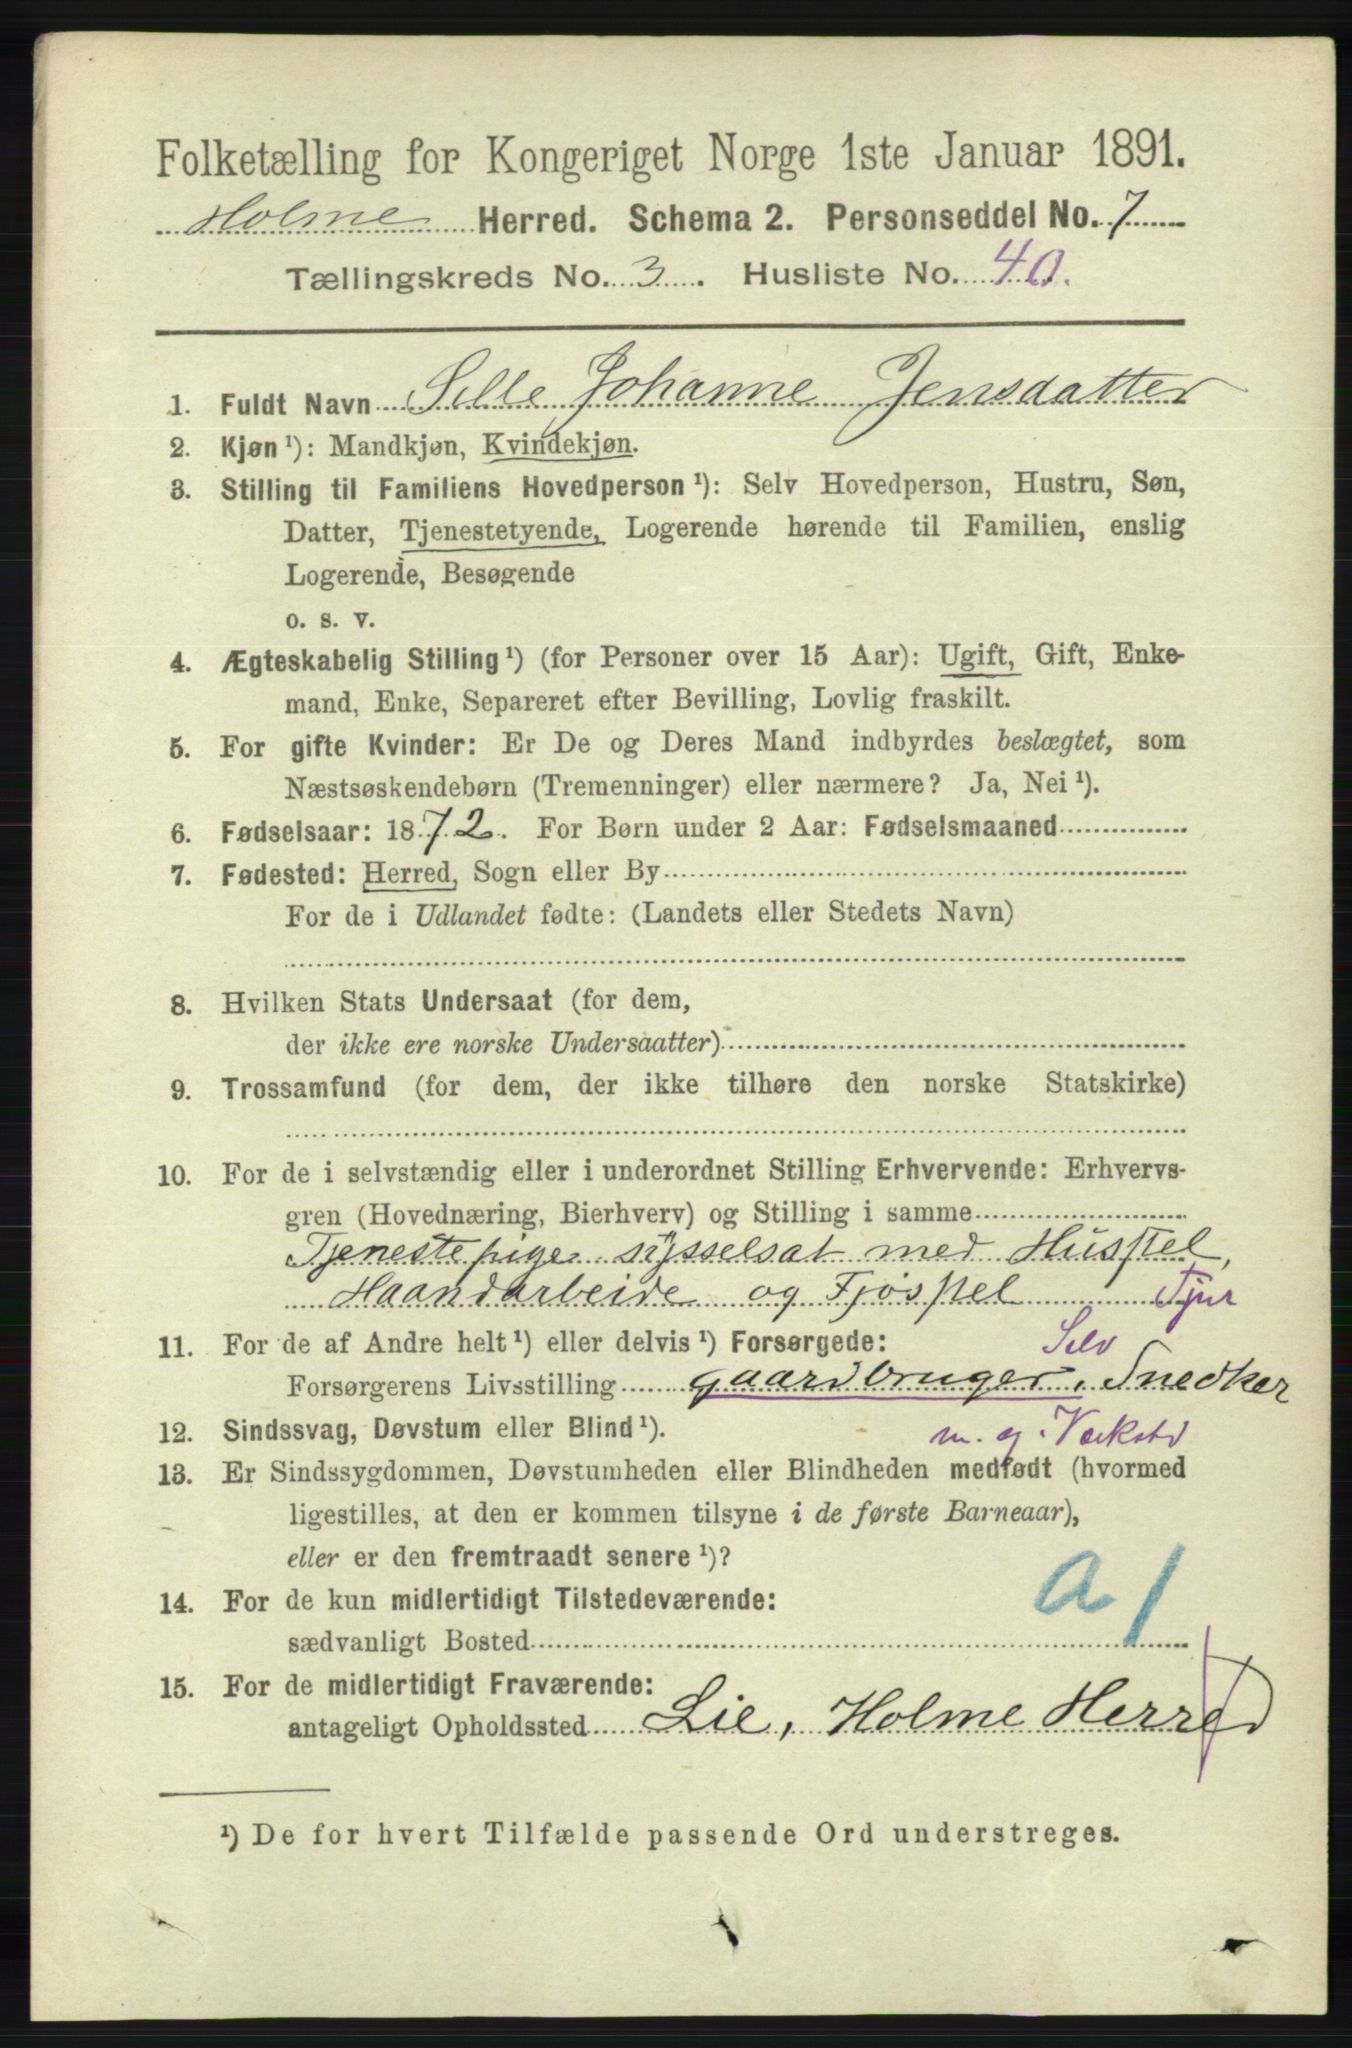 Folketælling for Kongeriget Norge 1ste Januar 1891.
Holme Herred. Schema 2. Personseddel No. 7
Tællingskreds No. 3. Husliste No. 40.
1. Fuldt Navn Sille Johanne Jensdatter
2. Kjøn ¹): Mandkjøn, Kvindekjøn.
3. Stilling til Familiens Hovedperson ¹): Selv Hovedperson, Hustru, Søn,
Datter, Tjenestetyende, Logerende hørende til Familien, enslig
Logerende, Besøgende
o. s. v.
4. Ægteskabelig Stilling ¹) (for Personer over 15 Aar): Ugift, Gift, Enke-
mand, Enke, Separeret efter Bevilling, Lovlig fraskilt.
5. For gifte Kvinder: Er De og Deres Mand indbyrdes beslægtet, som
Næstsøskendebørn (Tremenninger) eller nærmere? Ja, Nei ¹).
6. Fødselsaar: 1872. For Børn under 2 Aar: Fødselsmaaned
7. Fødested: Herred, Sogn eller By
For de i Udlandet fødte: (Landets eller Stedets Navn)
8. Hvilken Stats Undersaat (for dem,
der ikke ere norske Undersaatter)
9. Trossamfund (for dem, der ikke tilhøre den norske Statskirke)
10. For de i selvstændig eller i underordnet Stilling Erhvervende: Erhvervs-
gren (Hovednæring, Bierhverv) og Stilling i samme
Tjenestepige sysselsat med Husstel,
Haandarbeide og Fjøsstel Tjur
11. For de af Andre helt ¹) eller delvis ¹) Forsørgede:
Selv
Forsørgerens Livsstilling gaardbruger, Snedker
12. Sindssvag, Døvstum eller Blind ¹).
m. eg. Værkstd
13. Er Sindssygdommen, Døvstumheden eller Blindheden medfødt (hvormed
ligestilles, at den er kommen tilsyne i de første Barneaar),
eller er den fremtraadt senere ¹)?
a 1
14. For de kun midlertidigt Tilstedeværende:
sædvanligt Bosted
15. For de midlertidigt Fraværende:
antageligt Opholdssted Lie, Holme Herred
¹) De for hvert Tilfælde passende Ord understreges.